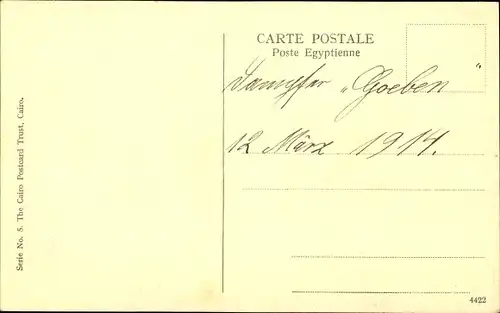 CARTE POSTALE
Poste Egyptienne
Dampfer „Goeben“
12 März 1914.
Serie No. 8. The Cairo Postcard Trust, Cairo.
4422